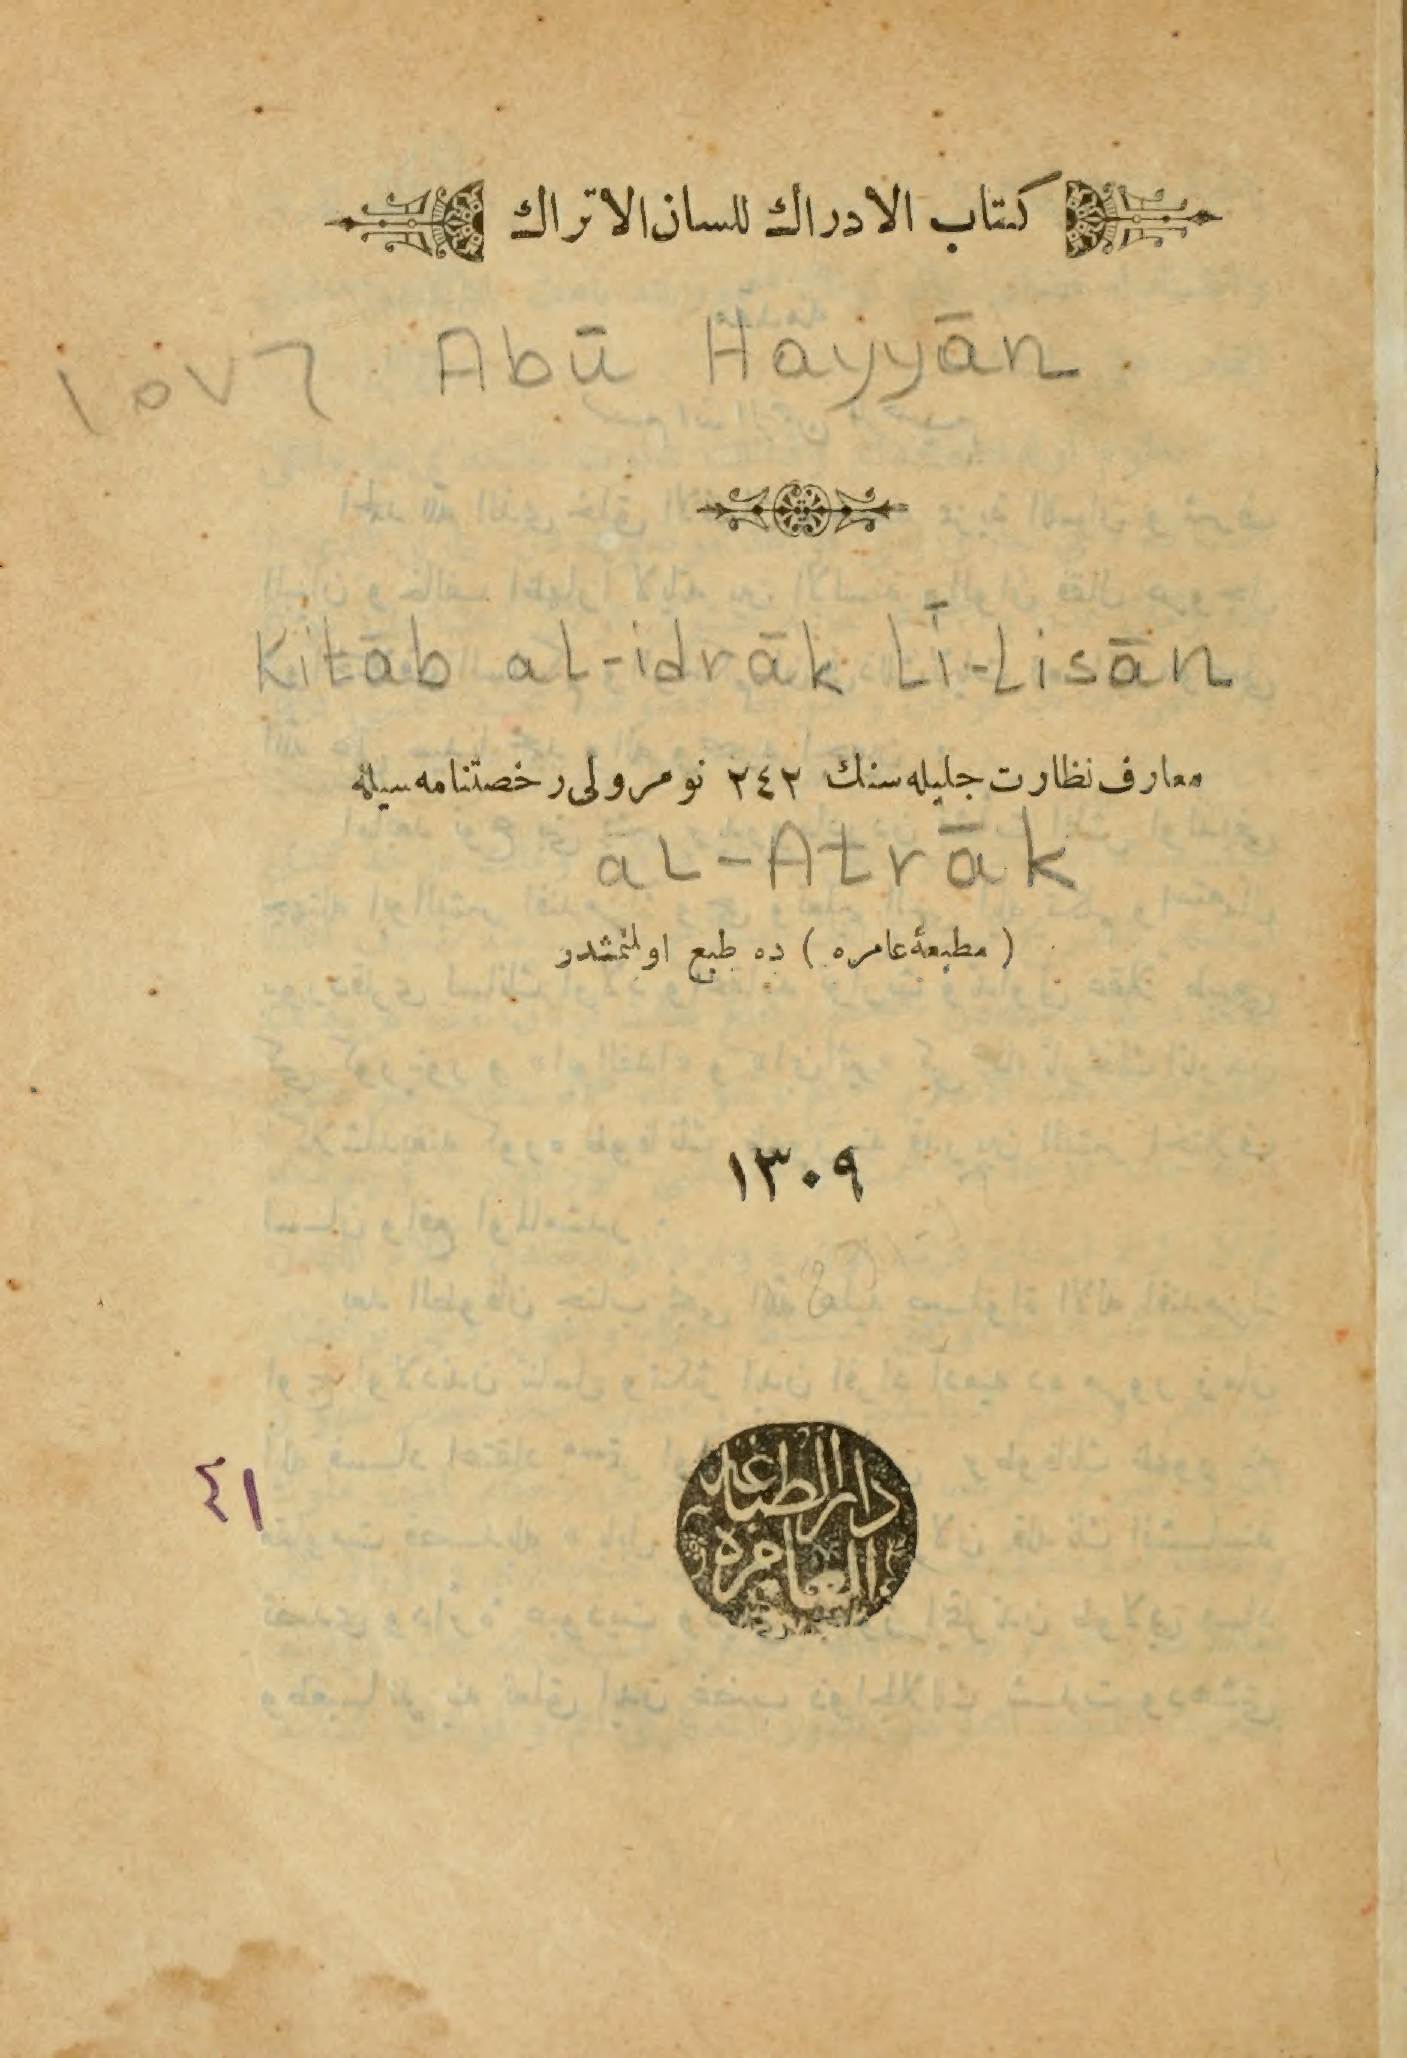 كتاب الأدراك للسان الأتراك
Abū Hayyān
١٥٧٦
Kitāb al-idrāk Li-Lisān
معارف نظارت جليله سنك ٢٤٢ نومرولى رخصتنامه سيله
al-Atrāk
( مطبعۀ عامره ) ده طبع اولنمشدر
١٣٠٩
٤١
دار الطباعه
العامره